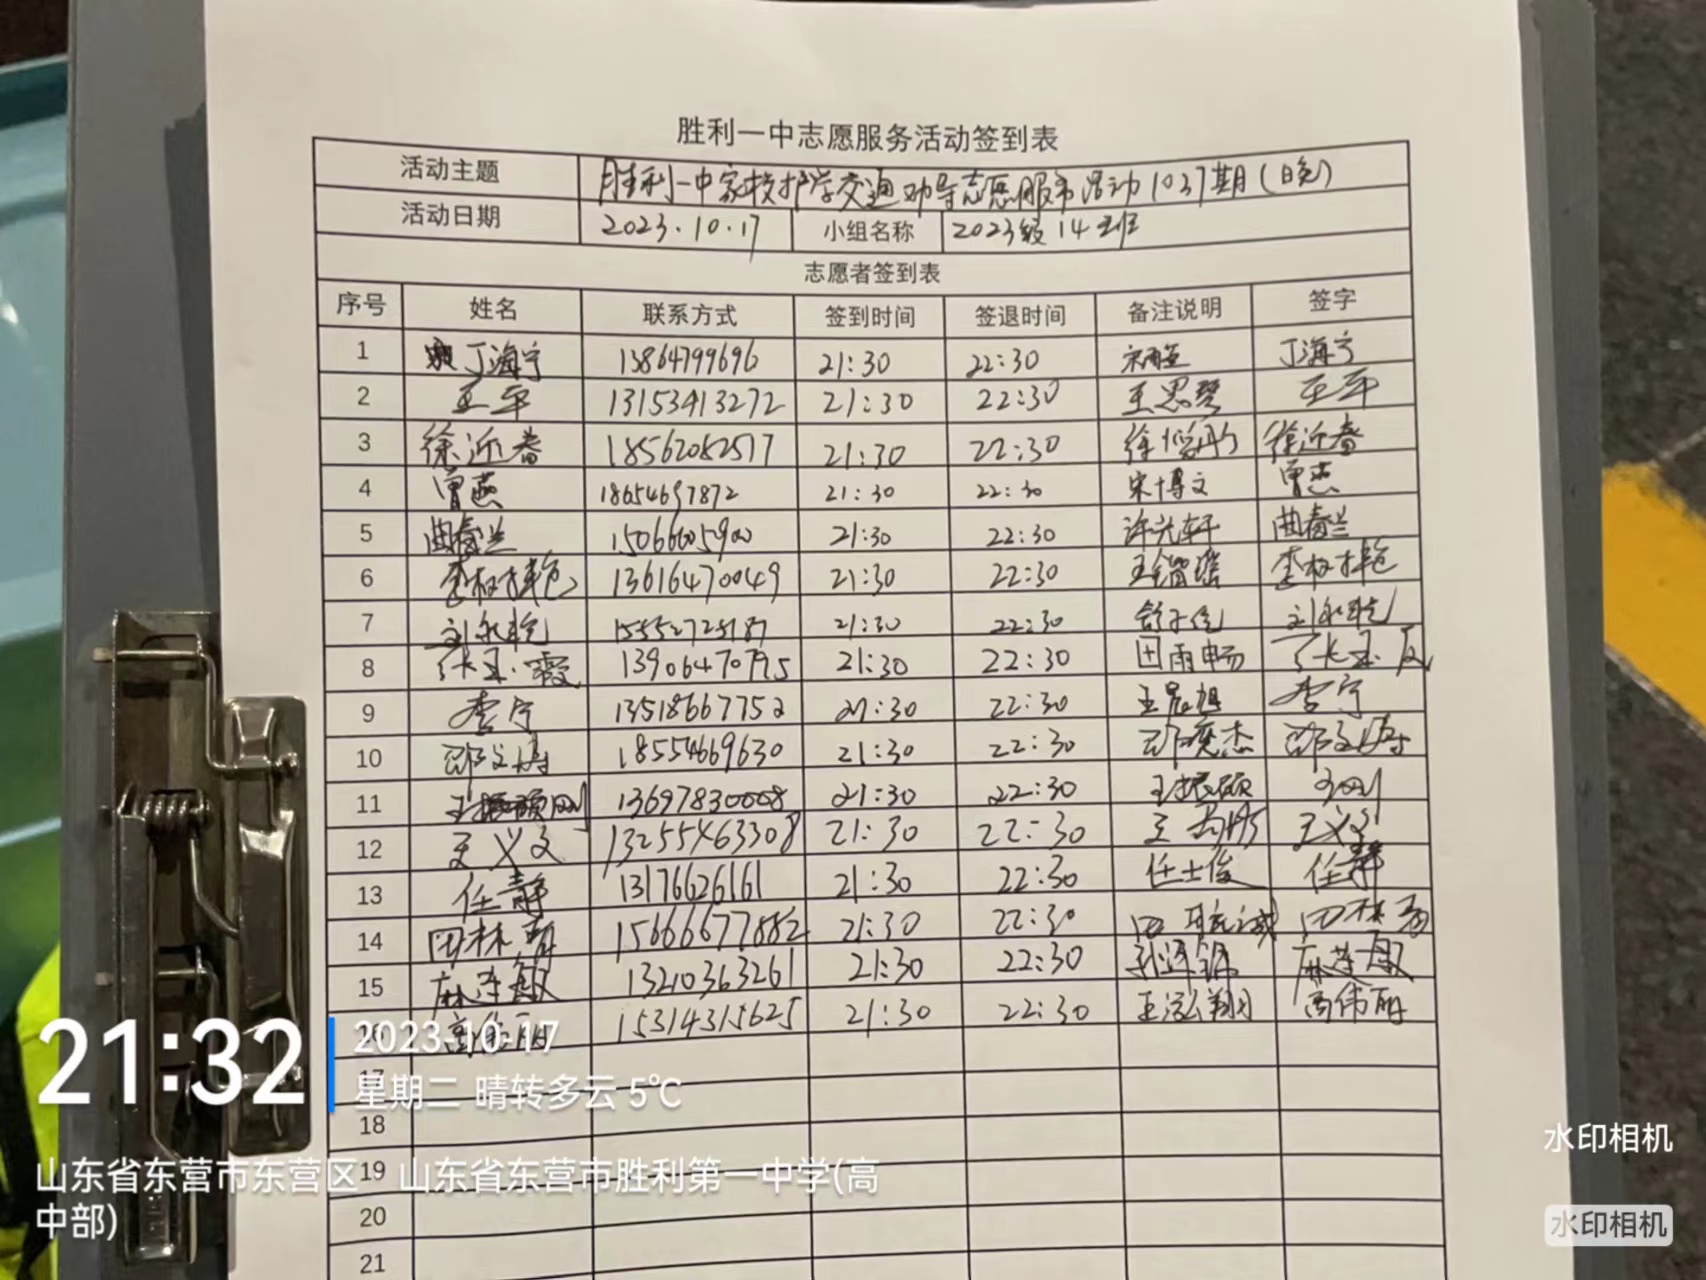 胜利一中志愿服务活动签到表
活动主题 胜利一中家校护学交通劝导志愿服务活动1037期(晚)
活动日期 2023.10.17 小组名称 2023级14班
志愿者签到表
序号 姓名 联系方式 签到时间 签退时间 备注说明 签字
1 丁海宁 13864799696 21:30 22:30 丁海宁
2 王平 13153413272 21:30 22:30 王思琴 王平
3 徐近春 18562082577 21:30 22:30 徐 徐近春
4 曾燕 18654697872 21:30 22:30 宋博文 曾燕
5 曲春兰 15066605900 21:30 22:30 许光轩 曲春兰
6 李 艳 13616470049 21:30 22:30 王 瑶 李 艳
7 刘 艳 15552725187 21:30 22:30 刘 艳
8 张玉霞 13906470795 21:30 22:30 田雨畅 张玉
9 李宁 13518667752 21:30 22:30 王晨旭 李宁
10 邵文海 18554669630 21:30 22:30 邵 杰 邵文海
11 13697830008 21:30 22:30 王振硕
12 王义文 13255463308 21:30 22:30 王 王义文
13 任静 13176626161 21:30 22:30 任士俊 任静
14 田林 15666677882 21:30 22:30 田 诚 田林
15 麻莲敏 13210363261 21:30 22:30 麻莲敏
高伟丽 15314315625 21:30 22:30 王泓翔 高伟丽
17
18
19
20
21
21:32
2023-10-17
星期二 晴转多云 5℃
山东省东营市东营区·山东省东营市胜利第一中学(高
中部)
水印相机
水印相机